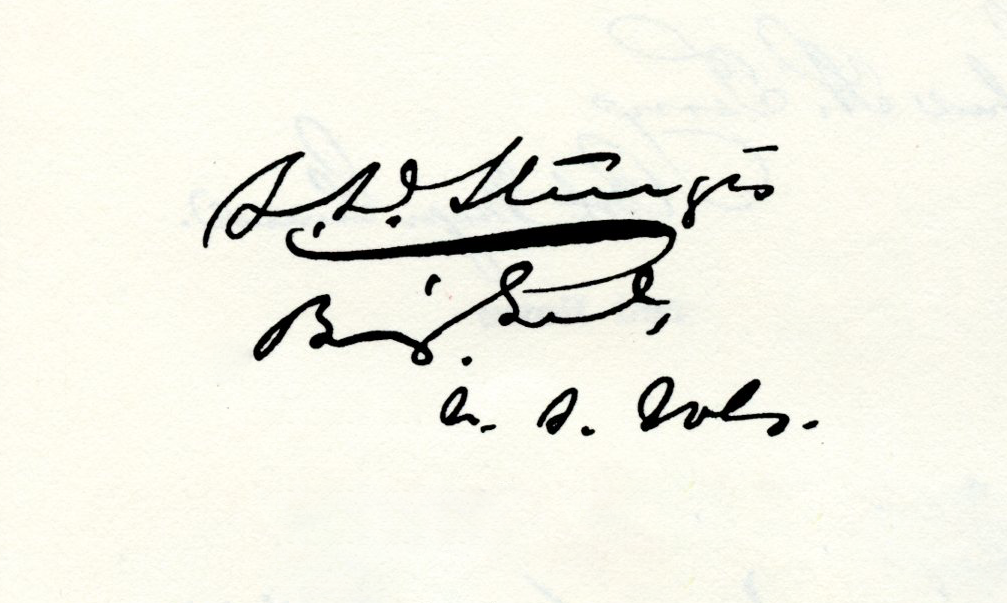 S. D. Sturgis
Brig. Genl,
U. S. Vols.